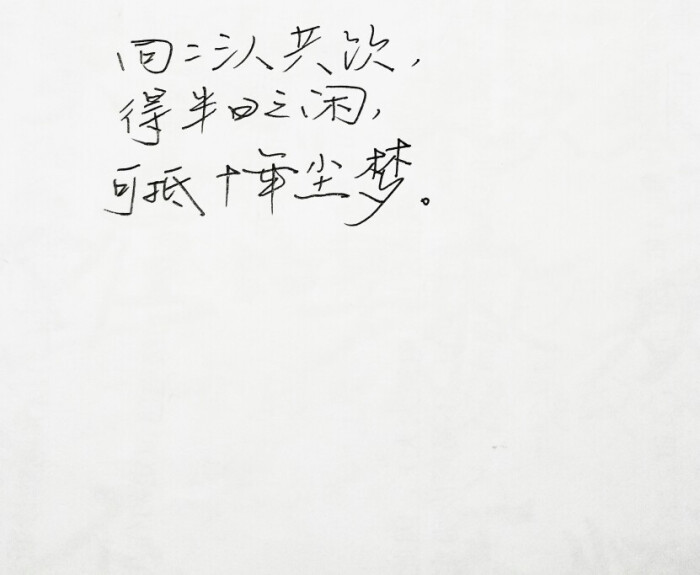 同二三人共饮，
得半日之闲，
可抵十年尘梦。